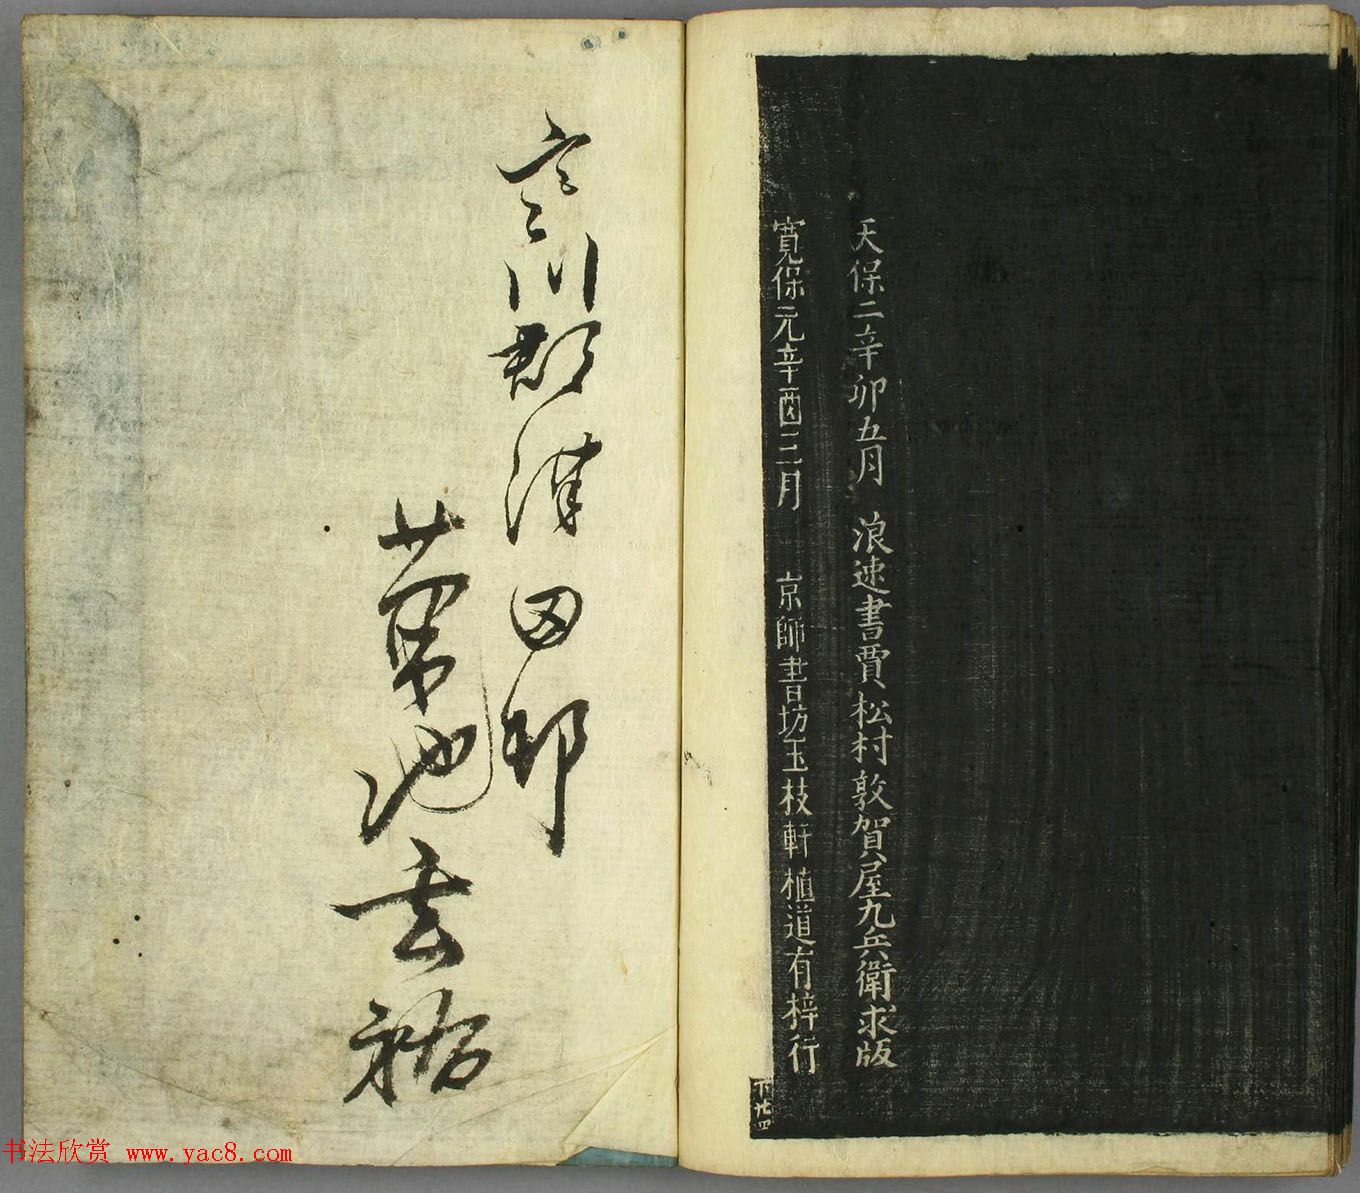 天保二辛卯五月 浪速書賈松村敦賀屋九兵衛求版
寛保元辛酉三月 京師書坊玉枝軒植道有梓行
下廿四
寒川郡津田邨
池玄
书法欣赏 www.yac8.com